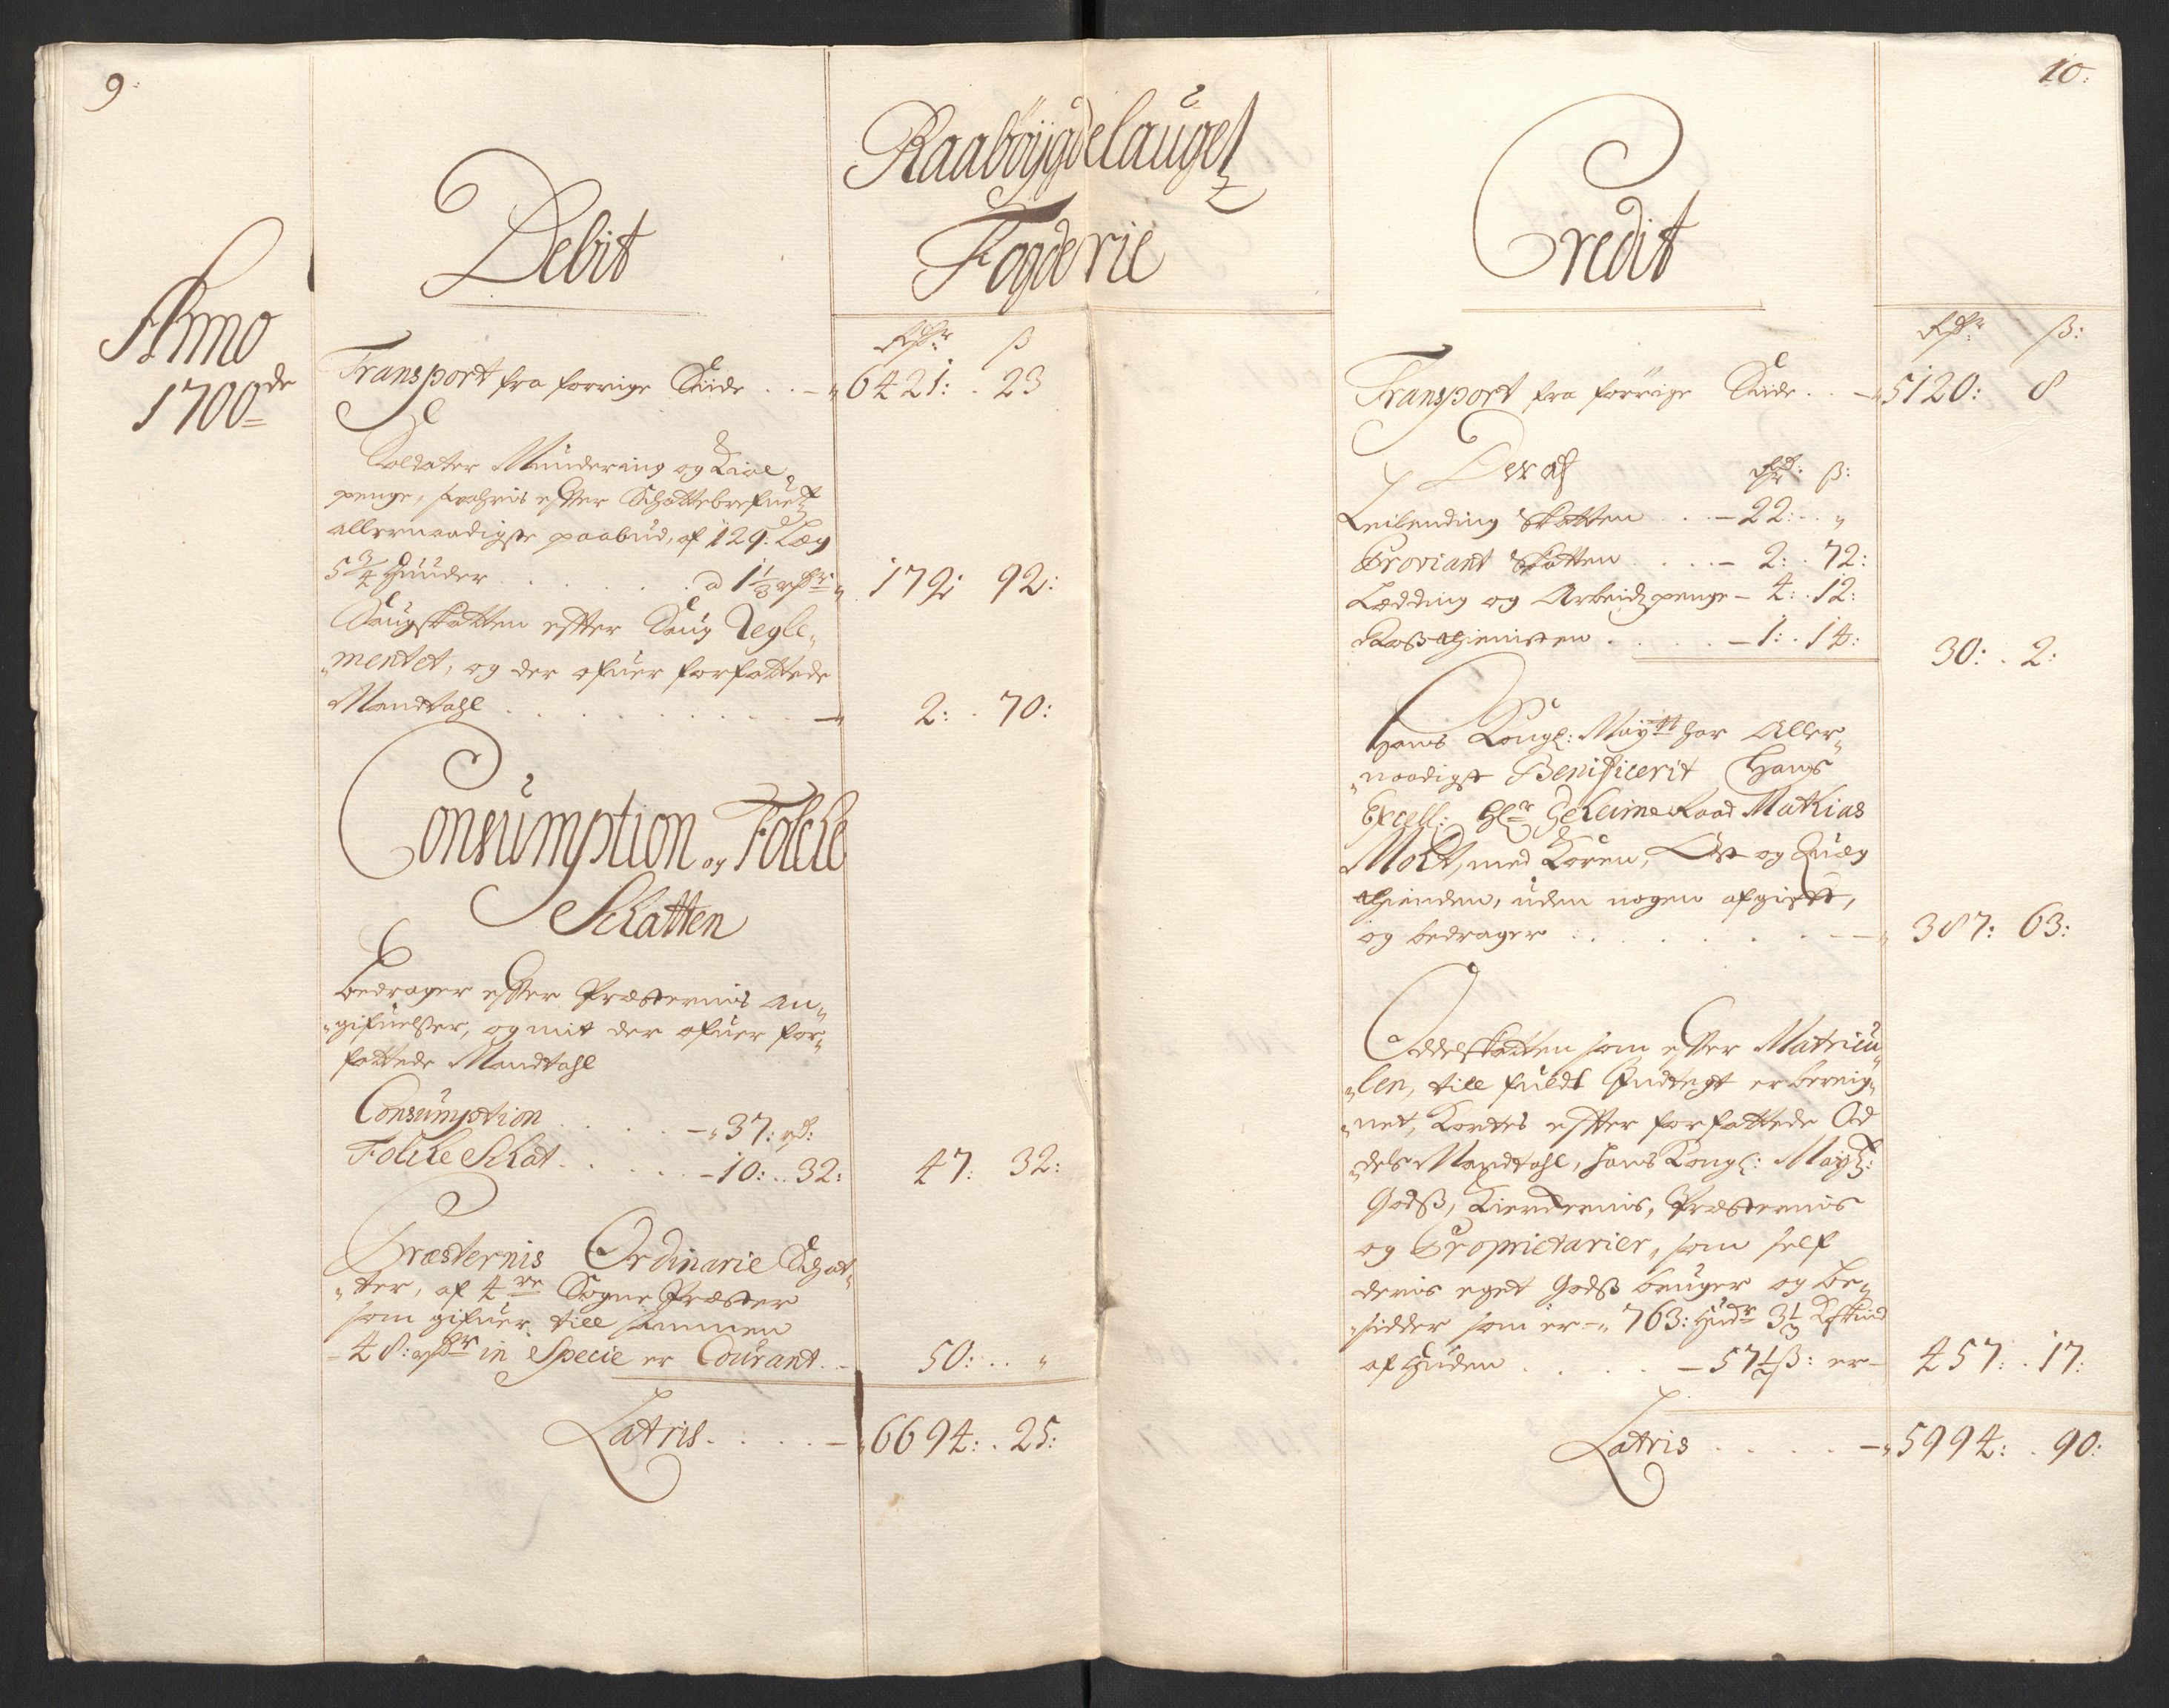 9:
Raabøÿgdelauget
Fogderie
Debit
Anno
1700de
Rdr ß
Transport fra forrige Siide . . -" 6421: . 23
Soldater Mundering og Kiole
penge, hvilchis effter Schattebrefuet
allernaadigste paabud, af 129. Læg
5 3/4 Huuder . . . . . a 1 1/3 rdr " 179: 92:
Saugskatten effter Saug Regle„
„mentet, og der ofuer forfattede
Mandtahl . . . . . . . . . . . — 2: . 70:
Consumption og Folcke
Schatten
bedrager effter Præsternis an„
„gifuelser, og mit der ofuer for„
fattede Mandtahl
Consumption . . . . . -" 37: rd:
Folcke Schat . . . . . - 10: . . 32: 47: 32:
Præsternis Ordinarie Schat„
„ter, af 4re Sogne Præster
som gifuer till sammen
- 48: rdr in Specie er Courant. - 50: . . "
Latris . . . . —" 6694: . 25:
10:
Credit
Rdr ß:
Transport fra forrige Siide . . —" 5120: 8
Der af Rdr: ß:
Leilending Skatten . . - 22: - "
Proviant Skatten . . . . - 2: . 72:
Ledding og Arbeidzpenge - 4: . 12:
Roszthienisten . . . . . - 1: . 14: 30: . 2:
Hans Kongl: Maytt har Aller„
„naadigst Benificerit Hans
Excell: Hr Geheime Raad Mathias
Moht, med Koren, Ost og Quæg
thienden, uden nogen afgifft,
og bedrager : . . . . . . — — " 387: 63:
Oddelskatten som effter Matricu„
„len, till fuldt Indtegt er bereig„
„net, Kortes effter forfattede Od
„dels Mandtahl, hans Kongl: Maytz:
Godß, Kierchernis, Præsternis
og Proprietarier, som self
deris eget Godß bruger og be„
„sidder som er -" 763: Hudr 3 1/3 Kskind
af Huden . . . . . - 57 1/2 ß: er - 457: . 17:
Latris . . . . —" 5994: . 90: